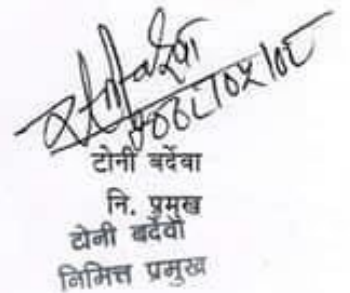 टोनी बर्देवा
नि. प्रमुख
टोनी बर्देवा
निमित्त प्रमुख